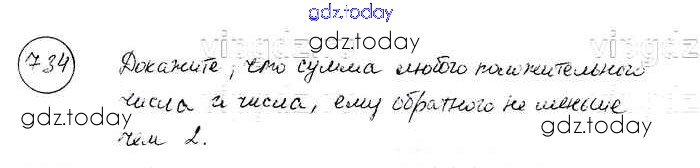 gdz.today
734 Докажите, что сумма любого положительного
gdz.today
числа и числа, ему обратного не меньше
gdz.today
gdz.today
чем 2.